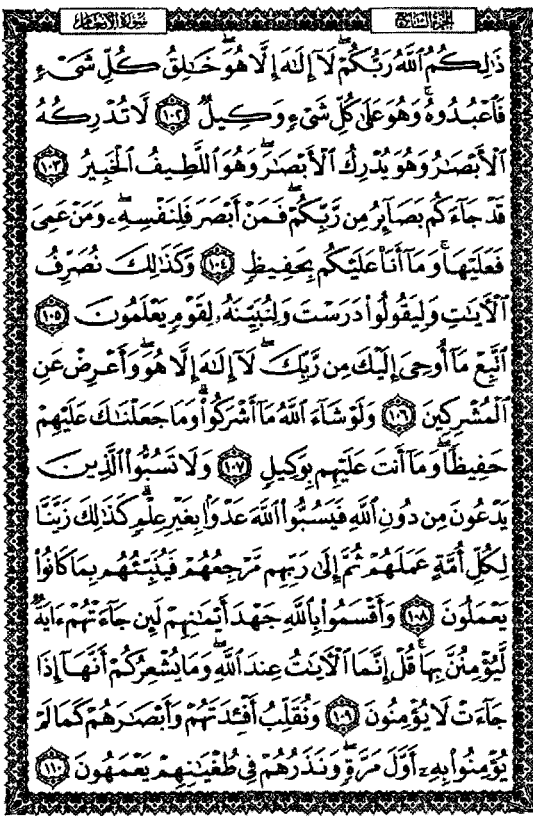 سورة الأنعام
الجزء السابع
ذَٰلِكُمُ ٱللَّهُ رَبُّكُمْ ۖ لَآ إِلَـٰهَ إِلَّا هُوَ ۖ خَـٰلِقُ كُلِّ شَىْءٍ
فَٱعْبُدُوهُ ۚ وَهُوَ عَلَىٰ كُلِّ شَىْءٍ وَكِيلٌ ١٠٢ لَّا تُدْرِكُهُ
ٱلْأَبْصَـٰرُ وَهُوَ يُدْرِكُ ٱلْأَبْصَـٰرَ ۖ وَهُوَ ٱللَّطِيفُ ٱلْخَبِيرُ ١٠٣
قَدْ جَآءَكُم بَصَآئِرُ مِن رَّبِّكُمْ ۖ فَمَنْ أَبْصَرَ فَلِنَفْسِهِۦ ۖ وَمَنْ عَمِىَ
فَعَلَيْهَا ۚ وَمَآ أَنَا۠ عَلَيْكُم بِحَفِيظٍ ١٠٤ وَكَذَٰلِكَ نُصَرِّفُ
ٱلْـَٔايَـٰتِ وَلِيَقُولُوا۟ دَرَسْتَ وَلِنُبَيِّنَهُۥ لِقَوْمٍ يَعْلَمُونَ ١٠٥
ٱتَّبِعْ مَآ أُوحِىَ إِلَيْكَ مِن رَّبِّكَ ۖ لَآ إِلَـٰهَ إِلَّا هُوَ ۖ وَأَعْرِضْ عَنِ
ٱلْمُشْرِكِينَ ١٠٦ وَلَوْ شَآءَ ٱللَّهُ مَآ أَشْرَكُوا۟ ۗ وَمَا جَعَلْنَـٰكَ عَلَيْهِمْ
حَفِيظًا ۖ وَمَآ أَنتَ عَلَيْهِم بِوَكِيلٍ ١٠٧ وَلَا تَسُبُّوا۟ ٱلَّذِينَ
يَدْعُونَ مِن دُونِ ٱللَّهِ فَيَسُبُّوا۟ ٱللَّهَ عَدْوًۢا بِغَيْرِ عِلْمٍ ۗ كَذَٰلِكَ زَيَّنَّا
لِكُلِّ أُمَّةٍ عَمَلَهُمْ ثُمَّ إِلَىٰ رَبِّهِم مَّرْجِعُهُمْ فَيُنَبِّئُهُم بِمَا كَانُوا۟
يَعْمَلُونَ ١٠٨ وَأَقْسَمُوا۟ بِٱللَّهِ جَهْدَ أَيْمَـٰنِهِمْ لَئِن جَآءَتْهُمْ ءَايَةٌ
لَّيُؤْمِنُنَّ بِهَا ۚ قُلْ إِنَّمَا ٱلْـَٔايَـٰتُ عِندَ ٱللَّهِ ۖ وَمَا يُشْعِرُكُمْ أَنَّهَآ إِذَا
جَآءَتْ لَا يُؤْمِنُونَ ١٠٩ وَنُقَلِّبُ أَفْـِٔدَتَهُمْ وَأَبْصَـٰرَهُمْ كَمَا لَمْ
يُؤْمِنُوا۟ بِهِۦٓ أَوَّلَ مَرَّةٍ وَنَذَرُهُمْ فِى طُغْيَـٰنِهِمْ يَعْمَهُونَ ١١٠